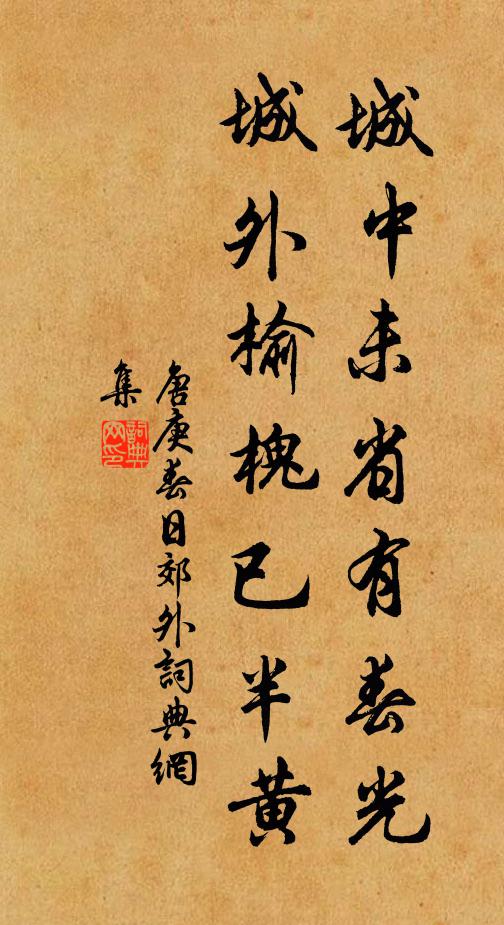 城中未省有春光
城外榆槐已半黄
唐庚春日郊外詞典網
集
詞典網印